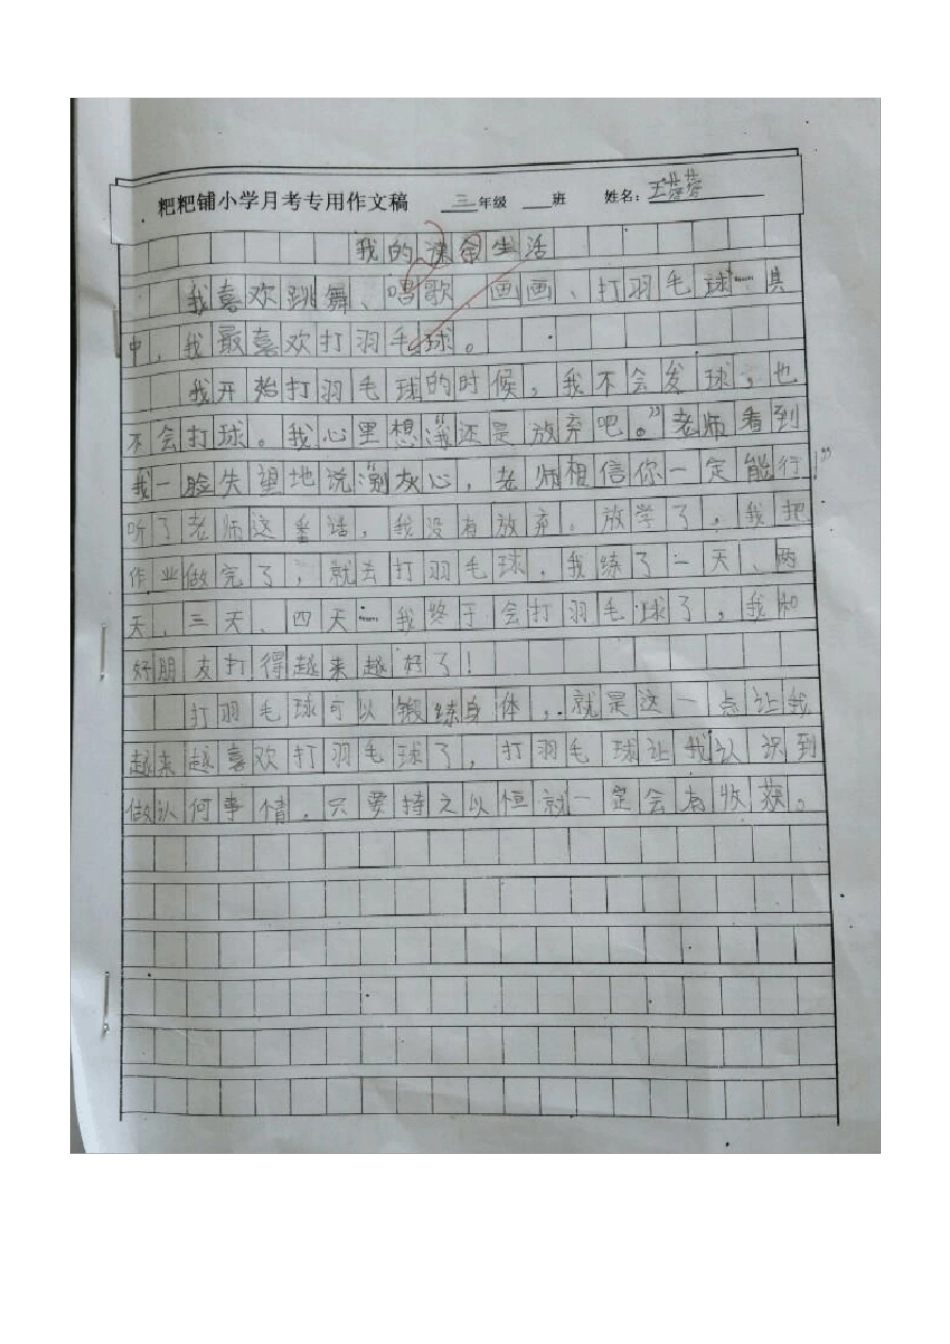 粑粑铺小学月考专用作文稿 三年级 班 姓名：王
我的课余生活
我喜欢跳舞、唱歌 画画、打羽毛球……其
中，我最喜欢打羽毛球。
我开始打羽毛球的时候，我不会发球，也
不会打球。我心里想：“我还是放弃吧。”老师看到
我一脸失望地说：“别灰心，老师相信你一定能行！”
听了老师这番话，我没有放弃。放学了，我把
作业做完了，就去打羽毛球．我练了一天、两
天、三天、四天……我终于会打羽毛球了，我和
好朋友打得越来越好了！
打羽毛球可以锻练身体，就是这一点让我
越来越喜欢打羽毛球了，打羽毛球让我认识到
做认何事情．只要持之以恒就一定会有收获。